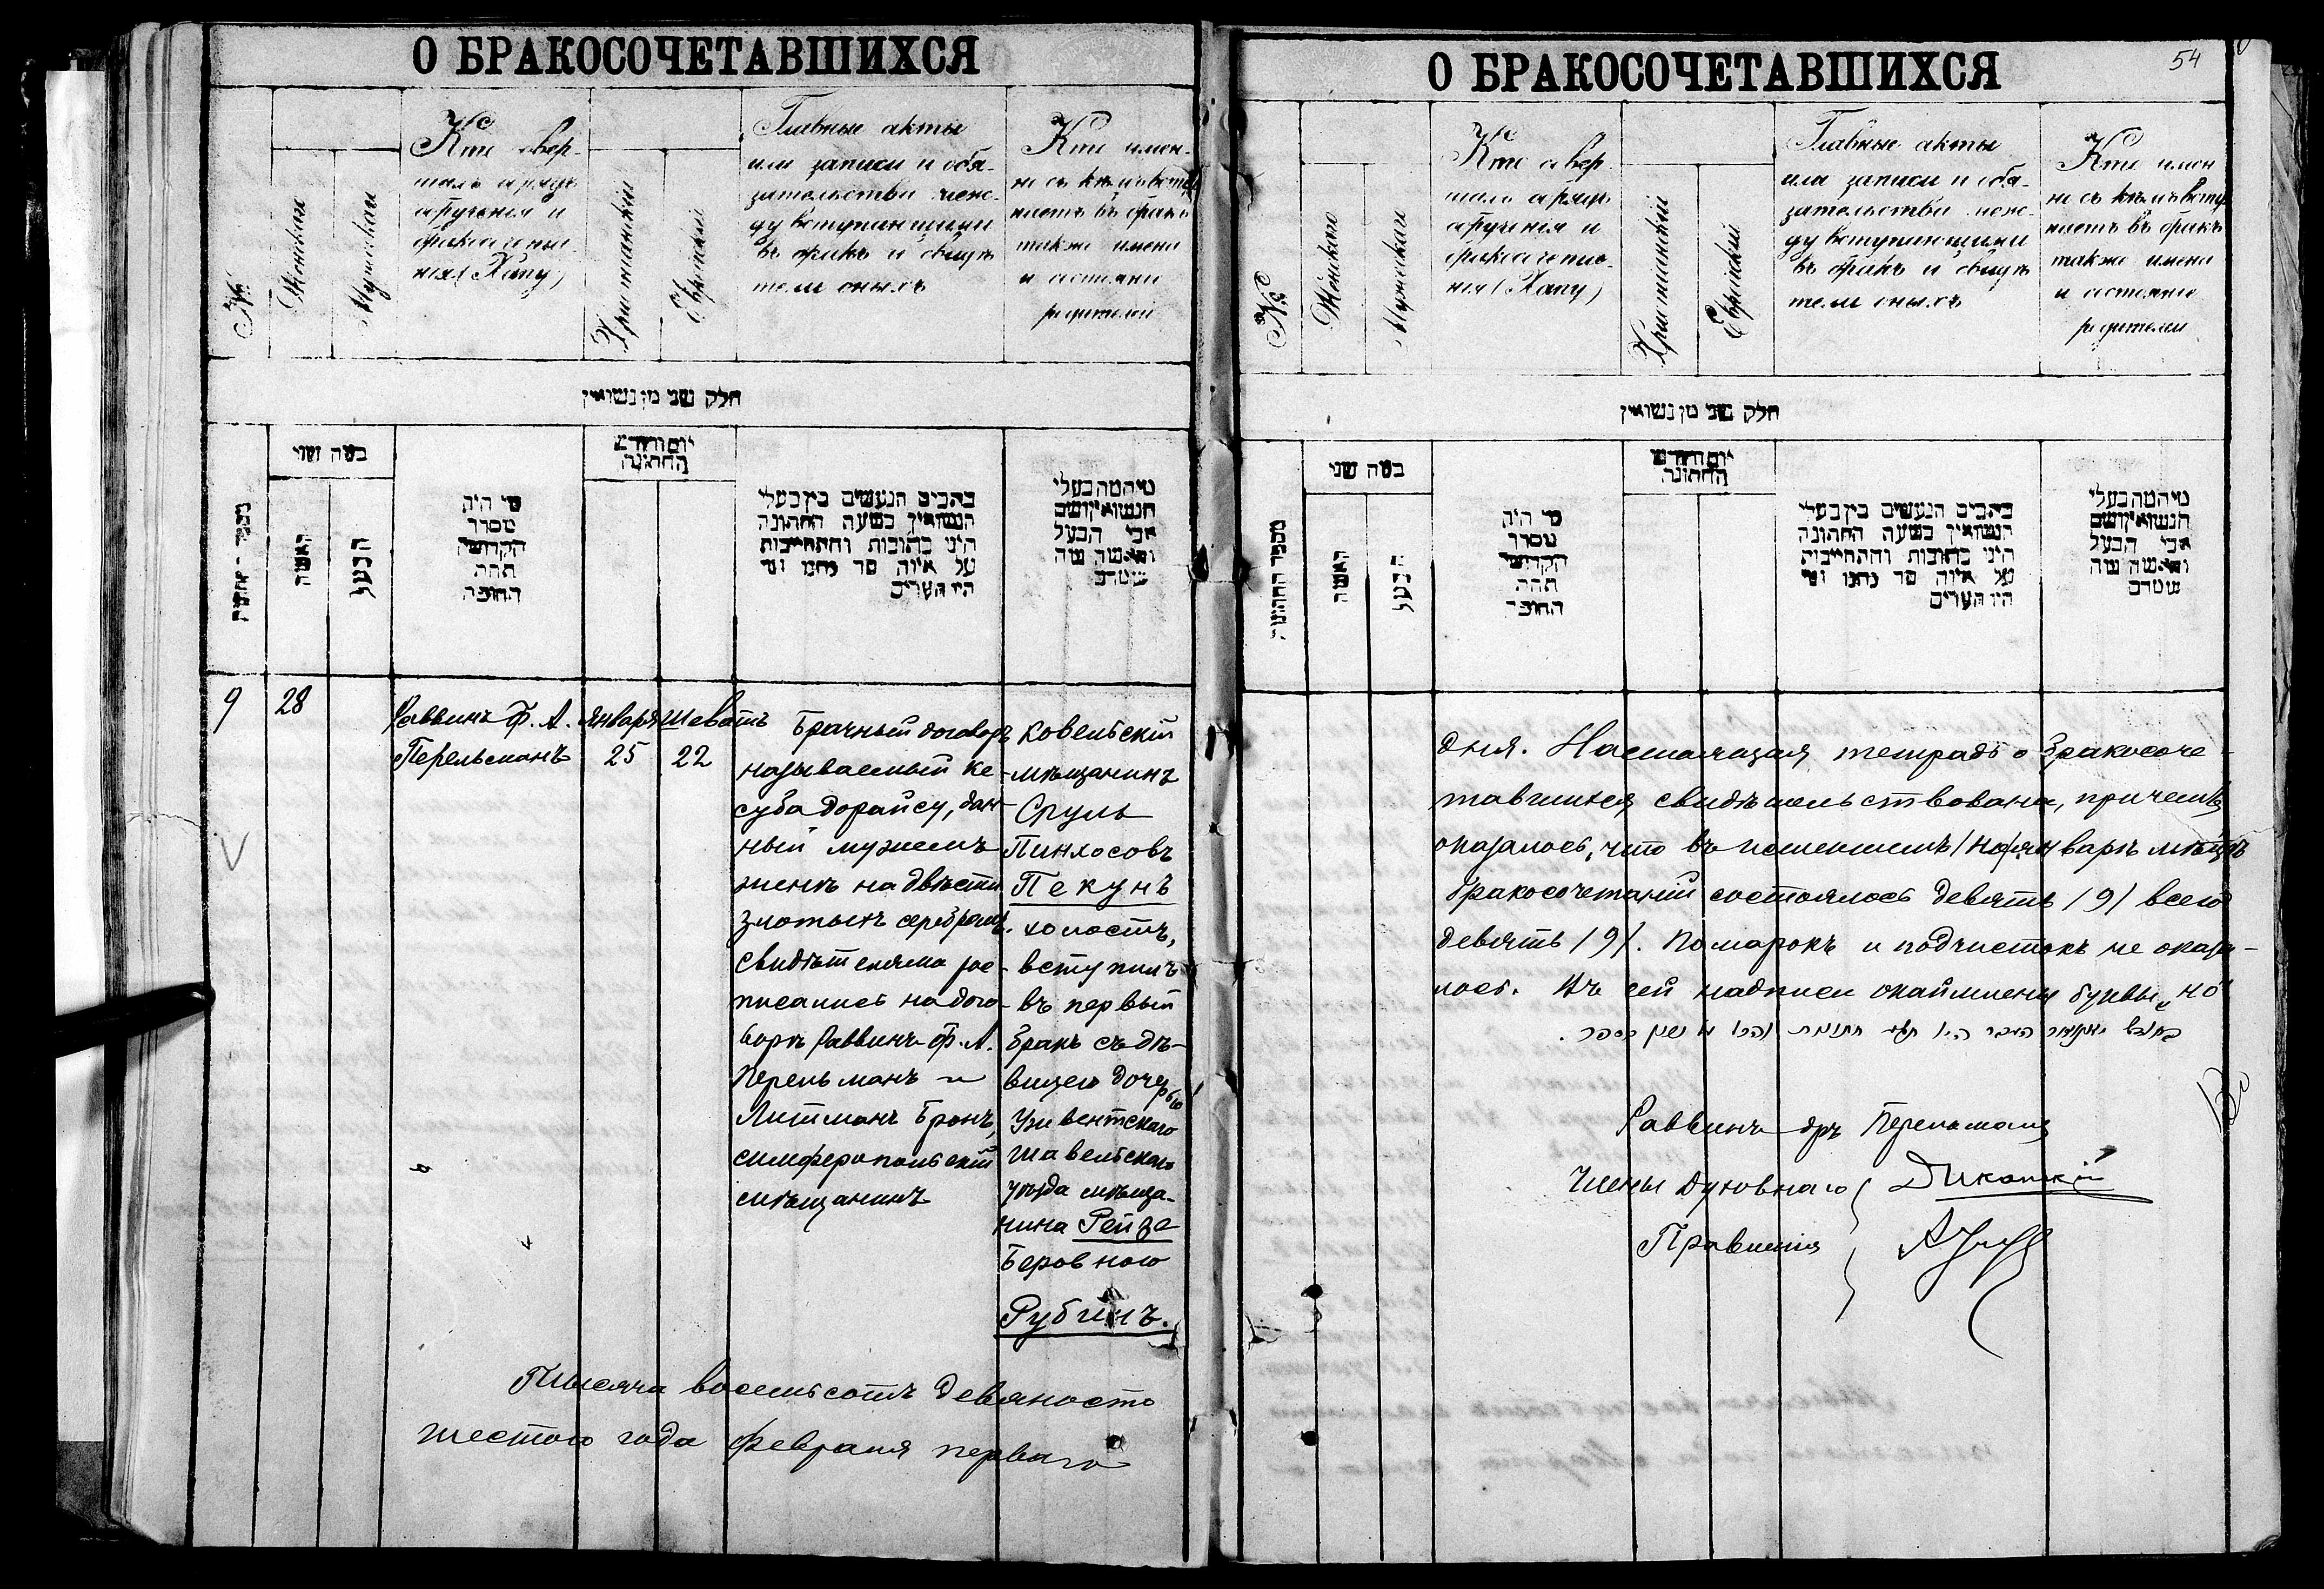 О БРАКОСОЧЕТАВШИХСЯ
№
Женскаго
Мужескаго
Кто совер-
шалъ обрядъ
обрученія и
бракосочета-
нія (Хупу)
Христіанскій
Еврейскій
Главные акты
или записи и обя-
зательства меж-
ду вступающими
въ бракъ и свидѣ
тели оныхъ
Кто имен-
но съ кѣмъ всту
паетъ въ бракъ
также имена
и состояніе
родителей
חלק שני מן נשואין
במה שני
האשה
הבעל
מי היה
מסדר
הקדושין
תחת
החופה
יום וחודש
החתונה
כתבים הנעשים בין בעלי
הנשואין בשעה החתונה
היינו כתובות והתחייבות
על איזה סך נתנו ומי
היו העדים
9
28
Раввинъ Ф. А.
Перельманъ
Января
25
Шеватъ
22
Брачный договоръ
называемый ке-
суба дорайсу, дан-
ный мужемъ
женѣ на двѣсти
злотыхъ серебромъ.
Свидѣтелями рос-
писались на дого-
ворѣ Раввинъ Ф. А.
Перельманъ и
Литманъ Бронъ,
симферопольскій
мѣщанинъ
Ковельскій
мѣщанинъ
Сруль
Пинхосовъ
Пекунъ
холостъ,
вступилъ
въ первый
бракъ съ дѣ-
вицею дочерью
Ужвентскаго
Шавельскаго
уѣзда мѣща-
нина Рейзе
Беровною
Рубинъ.
Тысяча восемьсотъ девяносто
шестого года февраля перваго
О БРАКОСОЧЕТАВШИХСЯ
54
№
Женскаго
Мужескаго
Кто совер
шалъ обрядъ
обрученія и
бракосочета-
нія (Хупу)
Христіанскій
Еврейскій
Главные акты
или записи и обя-
зательства меж-
ду вступающими
въ бракъ и свидѣ
тели оныхъ
Кто имен
но съ кѣмъ всту
паетъ въ бракъ
также имена
и состояніе
родителей
חלק שני מן נשואין
במה שני
מספר החתונה
האשה
הבעל
מי היה
מסדר
הקדושין
תחת
החופה
יום וחודש
החתונה
כתבים הנעשים בין בעלי
הנשואין בשעה החתונה
היינו כתובות והתחייבות
על איזה סך נתנו ומי
היו העדים
дня. Настоящая тетрадь о бракосоче-
тавшихся свидѣтельствована, причемъ
оказалось, что въ истекшемъ /но/ январѣ мѣсяцѣ
бракосочетаній состоялось девять /9/ всего
девять /9/. Помарокъ и подчистокъ не оказа-
лось. Въ сей надписи окаймлены буквы „но“
Раввинъ др Перельманъ
Члены Духовнаго
Правленія